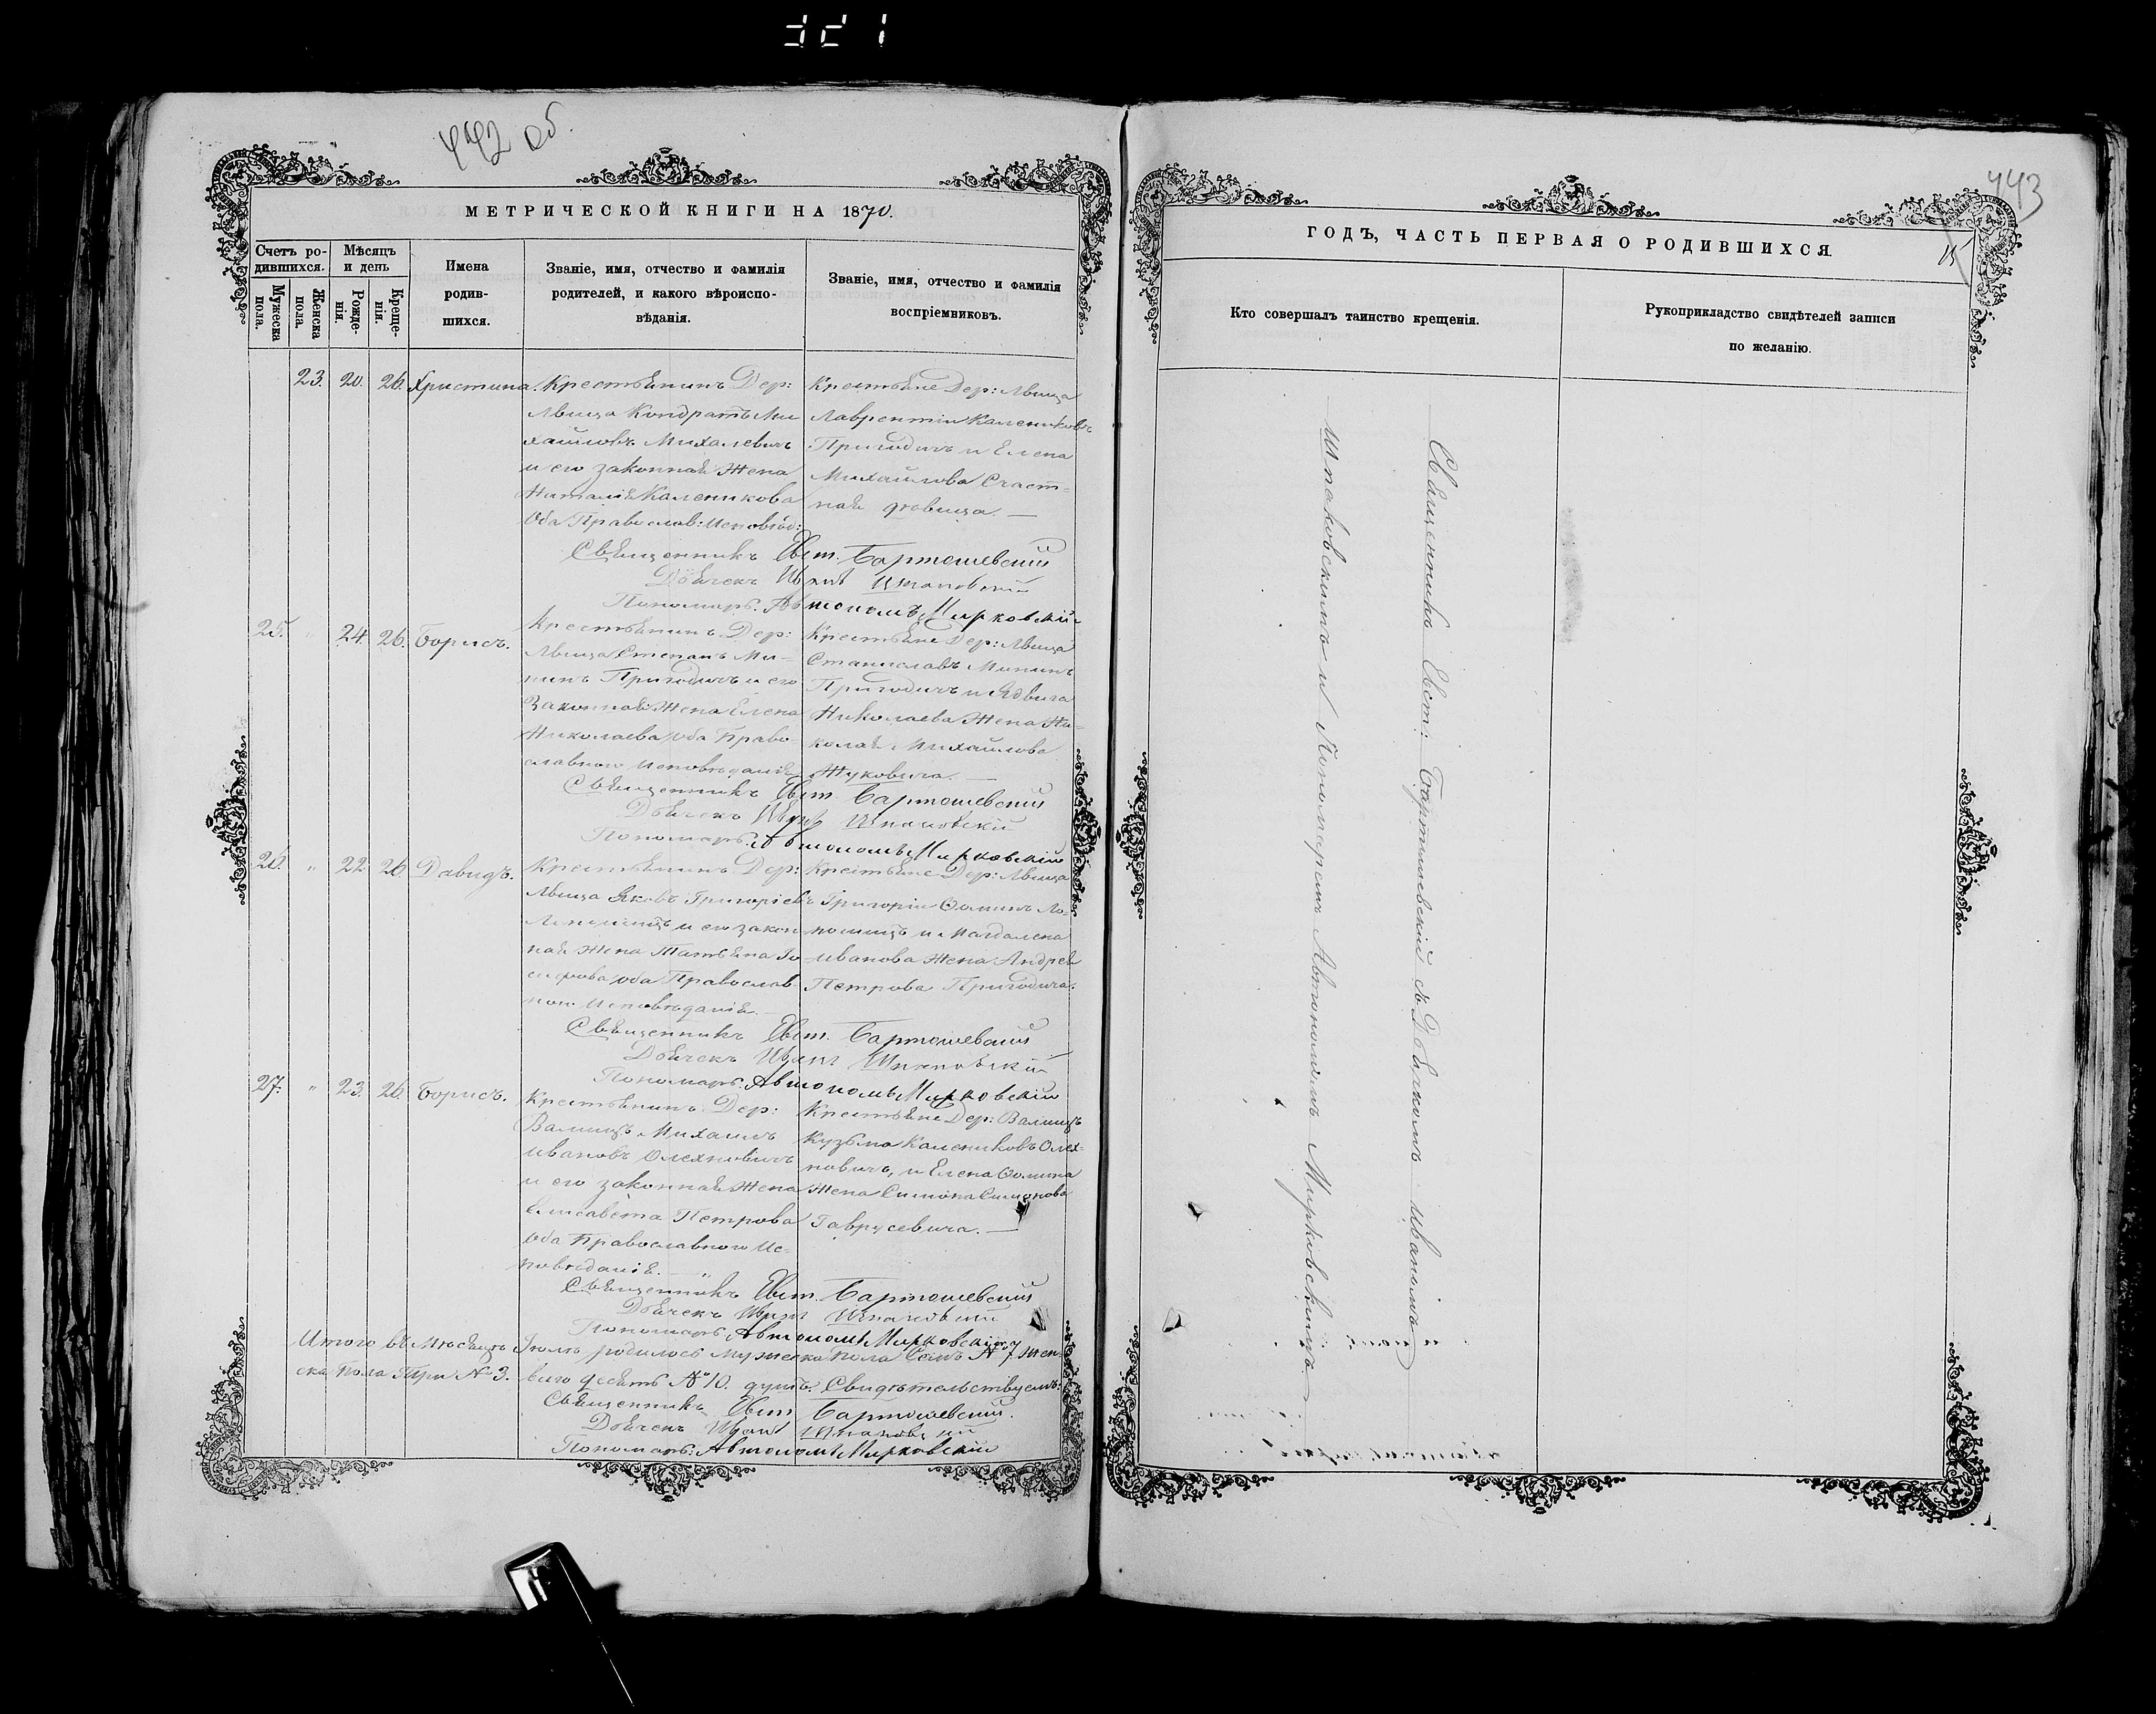 321
442 об.
МЕТРИЧЕСКОЙ КНИГИ НА 1870.
Счетъ ро-
дившихся.
Мѣсяцъ
и день
Мужеска
пола.
Женска
пола.
Рожде-
нія.
Креще-
нія.
Имена
родив-
шихся.
Званіе, имя, отчество и фамилія
родителей, и какого вѣроиспо-
вѣданія.
Званіе, имя, отчество и фамилія
воспріемниковъ.
23. 20. 26. Христина.
Крестьянинъ Дер:
Лвица Кондратъ Ми
хайловъ Михалевичъ
и его законная жена
Наталія Каленикова
Оба Православ: Исповѣд:
Крестьяне Дер: Лвица
Лаврентій Калениковъ
Пригодичъ и Елена
Михайлова Счаст-
ная
Священникъ Евст. Бартошевскій
Дьячекъ Иванъ Шпаковскій
Пономарь: Автономъ Мирковскій
25. " 24. 26. Борисъ.
Крестьянинъ Дер:
Лвица Степанъ Ми-
нинъ Пригодичъ и его
Законная Жена Елена
Николаева оба Право-
славного Исповѣданія
Крестьяне Дер: Лвица
Станиславъ Мининъ
Пригодичъ и Ядвига
Николаева Жена Ни-
колая Михайлова
Жуковича. —
Священникъ Евст. Бартошевскій
Дьячекъ Иванъ Шпаковскій
Пономарь: Автономъ Мирковскій
26. " 22. 26. Давидъ.
Крестьянинъ Дер:
Лвица Яковъ Григоріевъ
и его закон
ная Жена Татьяна Іо
сифова оба Православ
ного Исповѣданія. —
Крестьяне Дер: Лвица
Григорій Ѳоминъ
и Магдалена
Иванова Жена Андрея
Петрова Пригодича.
Священникъ Евст. Бартошевскій
Дьячекъ Иванъ Шпаковскій
Пономарь: Автономъ Мирковскій
27. " 23. 26. Борисъ.
Крестьянинъ Дер:
Валищъ Михаилъ
Ивановъ Олехновичъ
и его законная Жена
Елисавета Петрова
Оба Православного Ис-
повѣданія. —
Крестьяне Дер: Валищъ
Кузьма Калениковъ Олех-
новичъ, и Елена Ѳомина
Жена Симона Симонова
Гаврусевича. —
Священникъ Евст. Бартошевскій
Дьячекъ Иванъ Шпаковскій
Пономарь: Автономъ Мирковскій
Итого въ Мѣсяцѣ Іюлѣ родилось мужеска пола Семь № 7 Жен-
ска пола Три № 3. всего десять № 10. душъ. Свидѣтельствуемъ:
Священникъ Евст. Бартошевскій.
Дьячекъ Иванъ Шпаковскій
Пономарь: Автономъ Мирковскій
443
ГОДЪ, ЧАСТЬ ПЕРВАЯ О РОДИВШИХСЯ.
15
Кто совершалъ таинство крещенія.
Рукоприкладство свидѣтелей записи
по желанію.
Священникъ Евст: Бартошевскій съ Дьячкомъ Иваномъ
Шпаковскимъ и Пономаремъ Автономомъ Мирковскимъ —